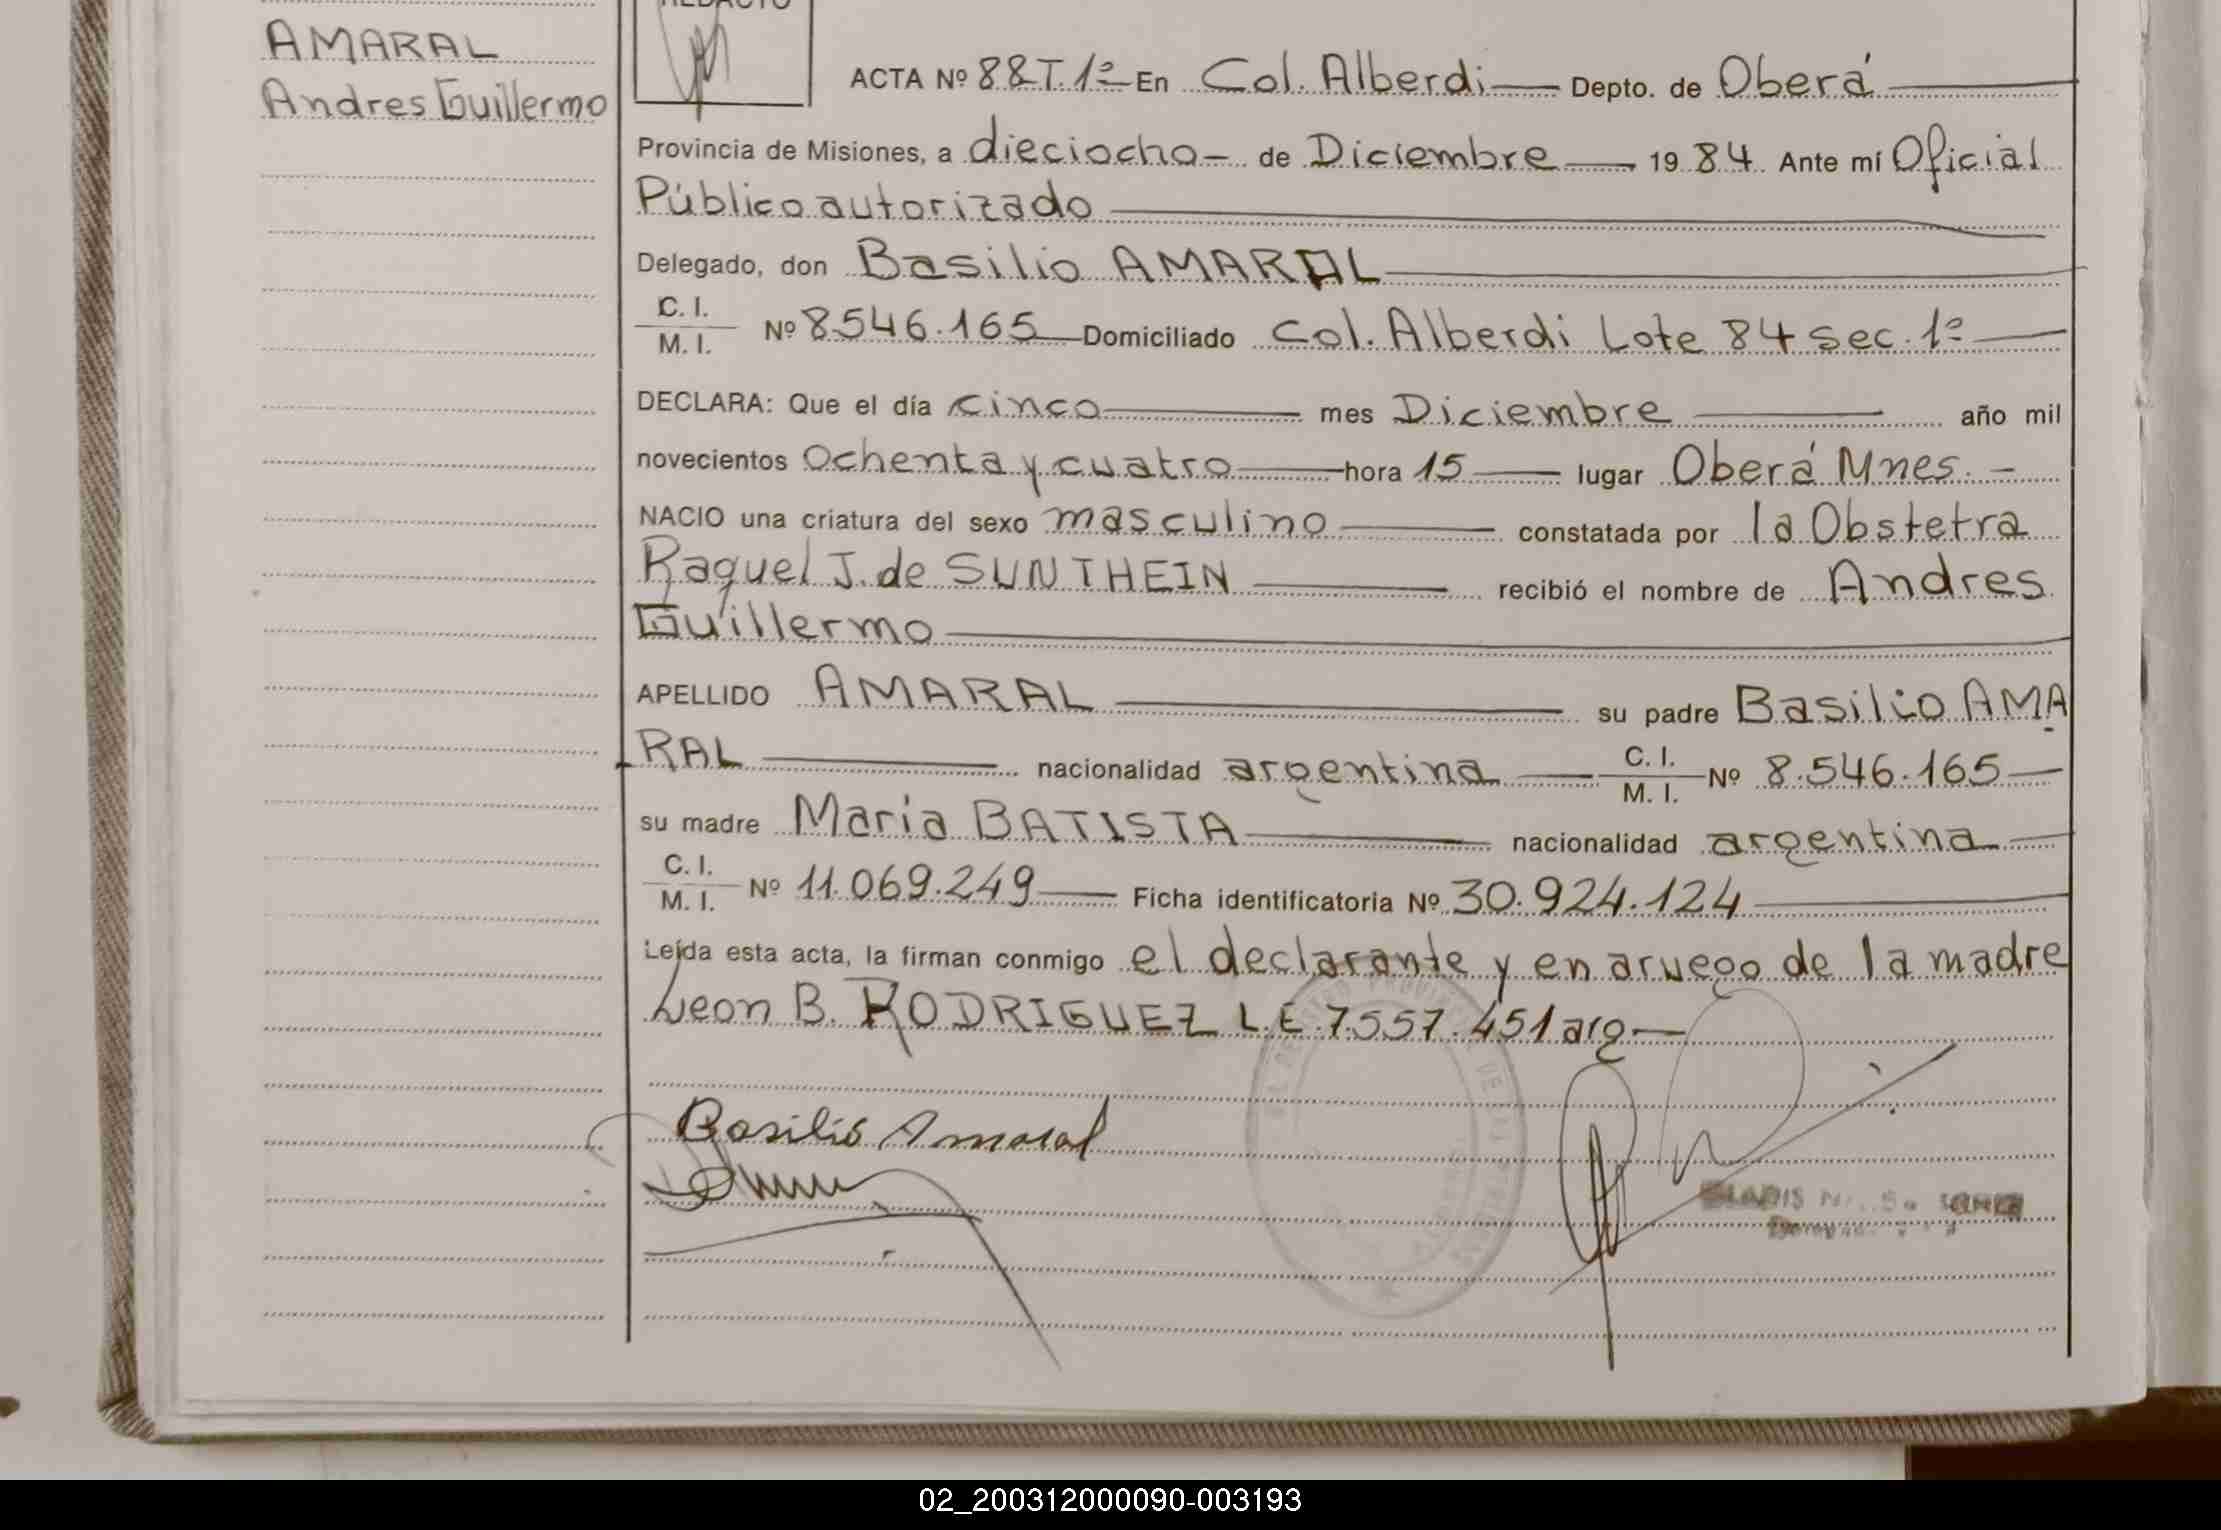 AMARAL
Andres Guillermo
REDACTO
ACTA Nº 88 T. 1º En Col. Alberdi Depto. de Oberá
Provincia de Misiones, a dieciocho de Diciembre 1984. Ante mí Oficial
Público autorizado
Delegado, don Basilio AMARAL
C. I.
M. I. Nº 8.546.165 Domiciliado Col. Alberdi Lote 84 Sec. 1º
DECLARA: Que el día cinco mes Diciembre año mil
novecientos Ochenta y cuatro hora 15 lugar Oberá Mnes.
NACIO una criatura del sexo masculino constatada por la Obstetra
Raquel J. de SUNTHEIN recibió el nombre de Andres
Guillermo
APELLIDO AMARAL su padre Basilio AMA
RAL nacionalidad argentina C. I. M. I. Nº 8.546.165
su madre Maria BATISTA nacionalidad argentina
C. I.
M. I. Nº 11.069.249 Ficha identificatoria Nº 30.924.124
Leída esta acta, la firman conmigo el declarante y en aruego de la madre
Leon B. RODRIGUEZ L.E. 7.557.451 arg
Basilio Amaral
02_200312000090-003193